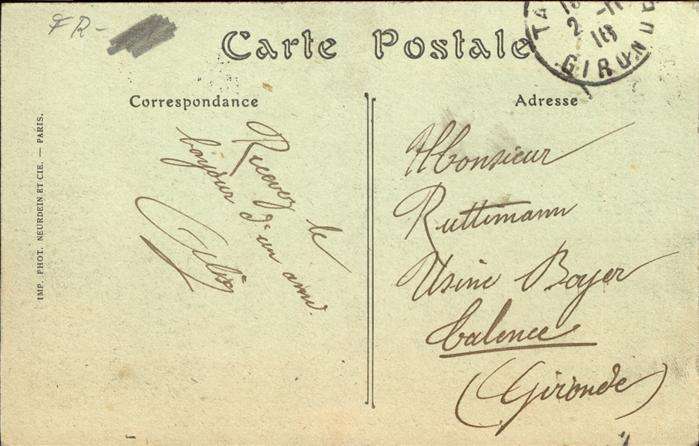 FR-
Carte Postale
TA
2 -11
18
GIRONDE
Correspondance
Adresse
IMP. PHOT. NEURDEIN ET CIE. — PARIS.
Recevez le
bonjour d'un ami.
Monsieur
Ruttimann
Usine Boyer
Talence
(Gironde)